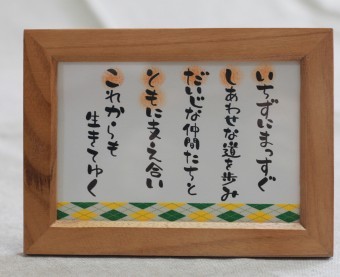 いちずにまっすぐ
しあわせな道を歩み
だいじな仲間たちと
ともに支え合い
これからも
生きてゆく